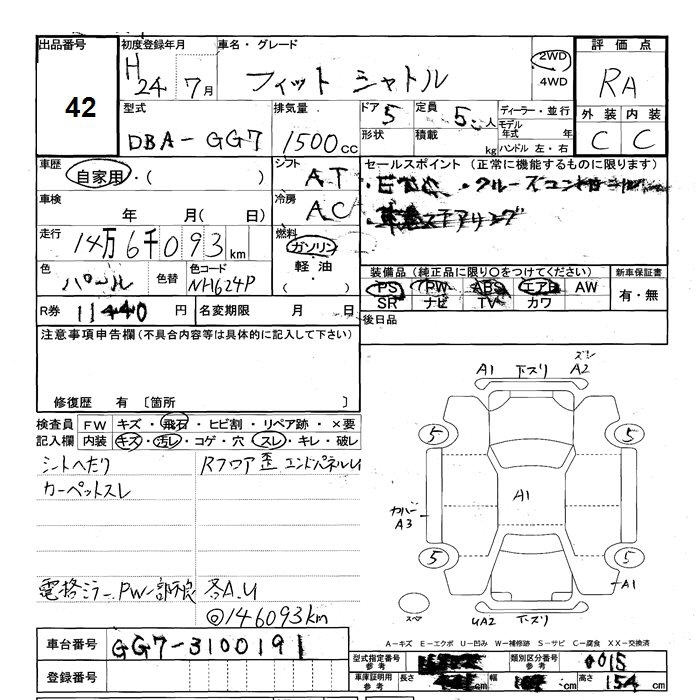 出品番号 初度登録年月 車名・グレード 2WD 評価点
42 H24 7月 フィットシャトル 4WD RA
型式 排気量 ドア 定員 ディーラー・並行 外装 内装
DBA-GG7 1500cc 5 5人 モデル年式 年 C C
形状 積載 kg ハンドル 左・右
車歴 自家用・( ) シフト AT セールスポイント (正常に機能するものに限ります)
車検 年 月( 日) 冷房 AC ・ETC ・クルーズコントロール
・革巻ステアリング
走行 14万6千093km 燃料 ガソリン
軽油・( )
色 パール 色替 色コード NH624P 装備品 (純正品に限り○をつけてください) 新車保証書
PS PW ABS エアB AW 有・無
SR ナビ TV カワ
R券 11440円 名変期限 月 日 後日品
注意事項申告欄(不具合内容等は具体的に記入して下さい)
修復歴 有 〔箇所 〕
検査員 FW キズ・飛石・ヒビ割・リペア跡・×要
記入欄 内装 キズ・汚レ・コゲ・穴・スレ・キレ・破レ
シートヘタリ Rフロア歪 エンドパネルU
カーペットスレ
電格ミラー、PW一部不良 各A.U
◎146093km
A1 下スリ A2
5 5
A1
カバー A3
5 5
A1
スペア UA2 下スリ
A-キズ E-エクボ U-凹み W-補修跡 S-サビ C-腐食 XX-交換済
車台番号 GG7-3100191
登録番号
型式指定番号 参考 類別区分番号 参考 0015
車庫証明用 参考 長さ cm 幅 cm 高さ 154cm